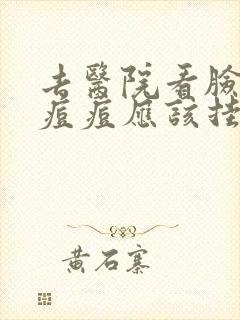 去醫院看臉
痘痘應該掛
黃石寨